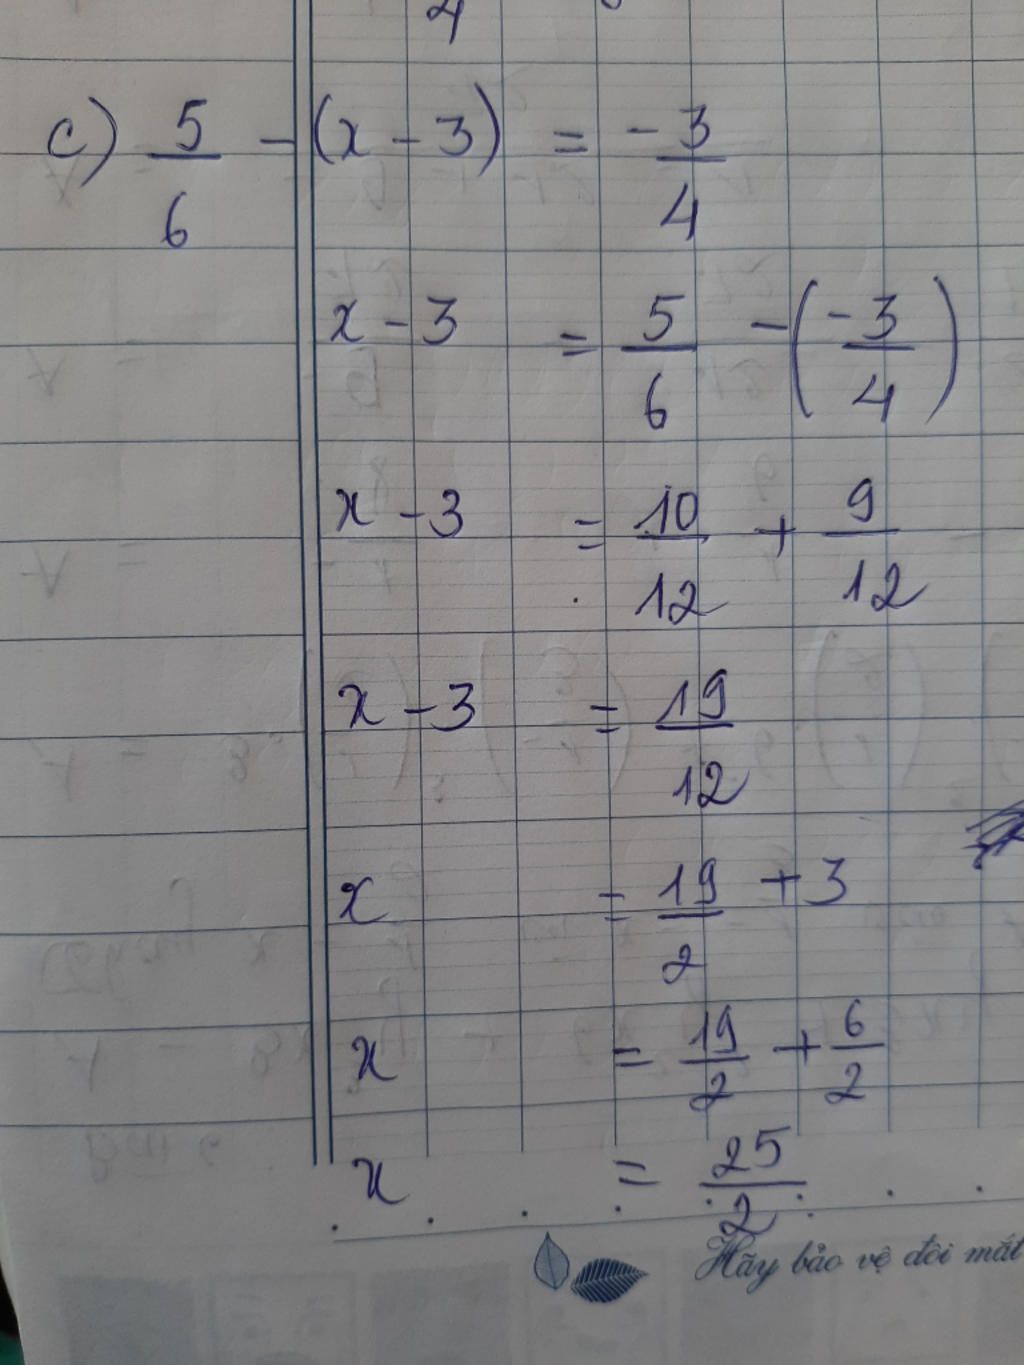 4
c) 5/6 - (x - 3) = -3/4
x - 3 = 5/6 - (-3/4)
x - 3 = 10/12 + 9/12
x - 3 = 19/12
x = 19/2 + 3
x = 19/2 + 6/2
x = 25/2
Hãy bảo vệ đôi mắt